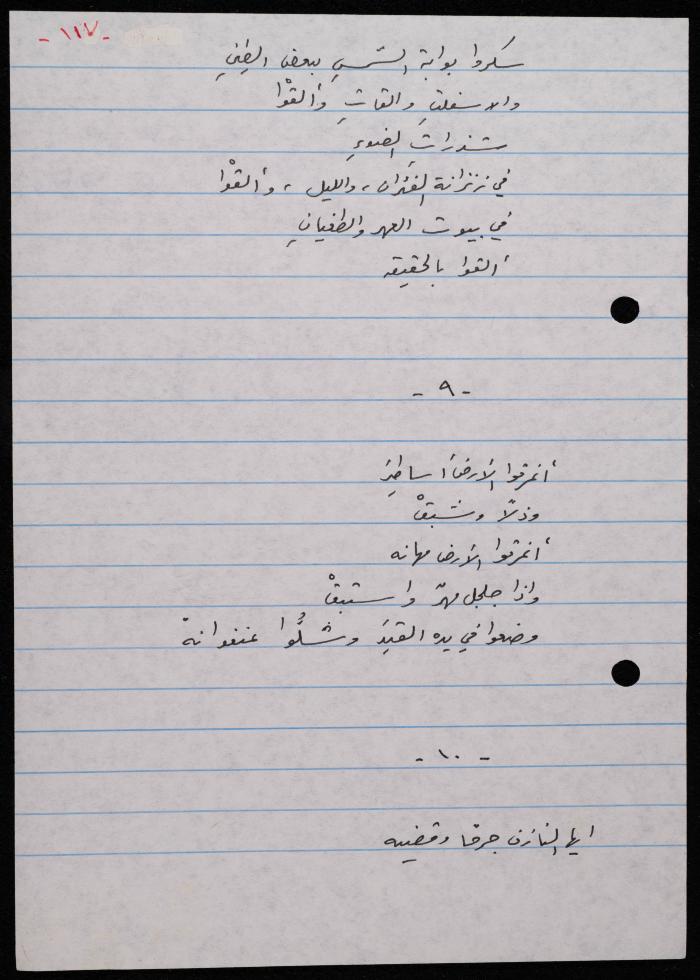 - ١١٧ -
سكروا بوابة الشمسِ ببعض الطينِ
والاسفلتِ والقاتِ وألقَوْا
شذراتِ الضوءِ
في زنزانة الفئران، والليل، وألقَوْا
في بيوت العهر والطغيانِ
ألقوا بالحقيقه
- ٩ -
أغرقوا الأرضَ اساطيرَ
وذلّا وشبقْ
أغرقوا الأرض مهانه
واذا جلجل مهرٌ واستبقْ
وضعوا في يده القيدَ وشلُّوا عنفوانهْ
- ١٠ -
ايها النازف جرحًا وقضيه